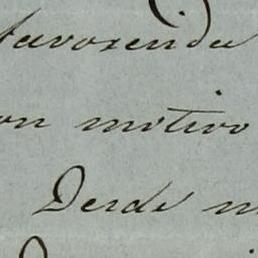 favorenida
on motivo
Desde